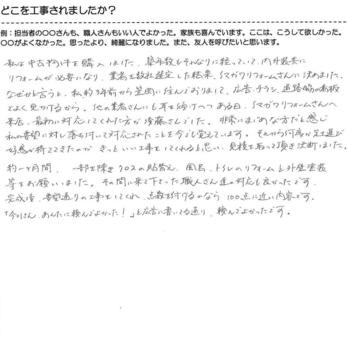 どこを工事されましたか？
例：担当者の〇〇さんも、職人さんもいい人でよかった。家族も喜んでいます。ここは、こうして欲しかった。
〇〇がよくなかった。思ったより、綺麗になりました。また、友人を呼びたいと思います。
私は中古物件を購入しました。築年数もそれなりに経っていて、内外装共に
リフォームが必要になり、業者を数社選定した結果、ミヤガワリフォームさんに決めました。
なぜかと言うと、私が3年前から芝園に住んでおりまして、広告、チラシ、道路脇の看板
でよく見かけるから。他の業者さんにも足を運びつつある日、ミヤガワリフォームさんへ
来店、最初に対応してくれた方が後藤さんでした。非常にまじめな方だと感じ
私の希望に対し落ち付いて対応されたことを今でも覚えています。それから何度か足を運び
好感が持ててきたのできっといい工事をしてくれると思い、見積を取って頂き決断しました。
約一ヶ月間、一部を除きクロスの貼替え、風呂、トイレのリフォームと外壁塗装
等をお願いしました。その間に来て下さった職人さん達の対応も良かったです。
完成後、希望通りの工事をしてくれ、点数を付けるのなら100点に近い内容です。
「今りさん、あんたに頼んでよかった！」と広告に書いてる通り、頼んでよかったです。